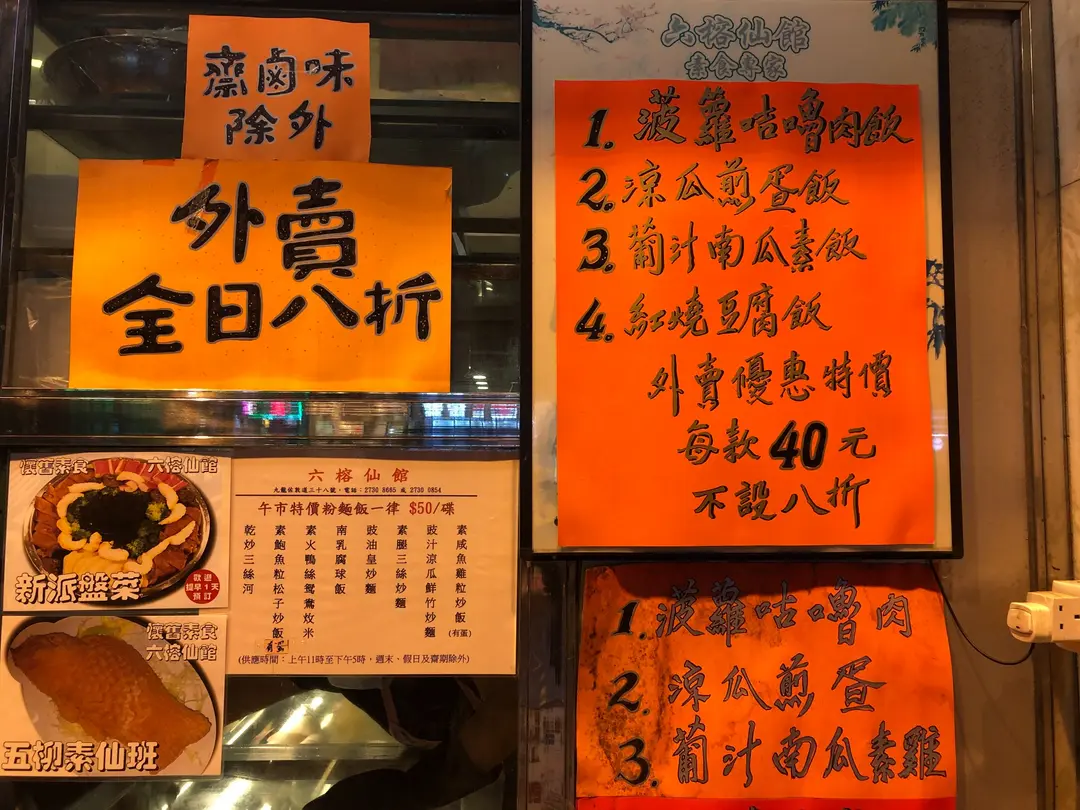 齋鹵味
除外
外賣
全日八折
六榕仙館
素食專家
1. 菠蘿咕嚕肉飯
2. 涼瓜煎蛋飯
3. 葡汁南瓜素飯
4. 紅燒豆腐飯
外賣優惠特價
每款40元
不設八折
懷舊素食 六榕仙館
新派盤菜
歡迎
提早1天
預訂
懷舊素食
六榕仙館
五柳素仙班
六榕仙館
九龍佐敦道三十八號，電話：2730 8665 或 2730 0854
午市特價粉麵飯一律 $50/碟
素咸魚雞粒炒飯(有蛋)
豉汁涼瓜鮮竹麵
素腿三絲炒麵
豉油皇炒麵
南乳腐球飯
素火鴨絲鴛鴦炆米
素鮑魚粒松子炒飯
乾炒三絲河
(供應時間：上午11時至下午5時，週末、假日及齋期除外)
1. 菠蘿咕嚕肉
2. 涼瓜煎蛋
3. 葡汁南瓜素雞